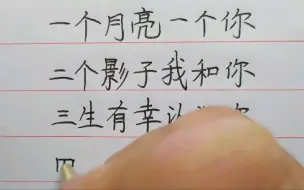 一个月亮一个你
二个影子我和你
三生有幸认
四